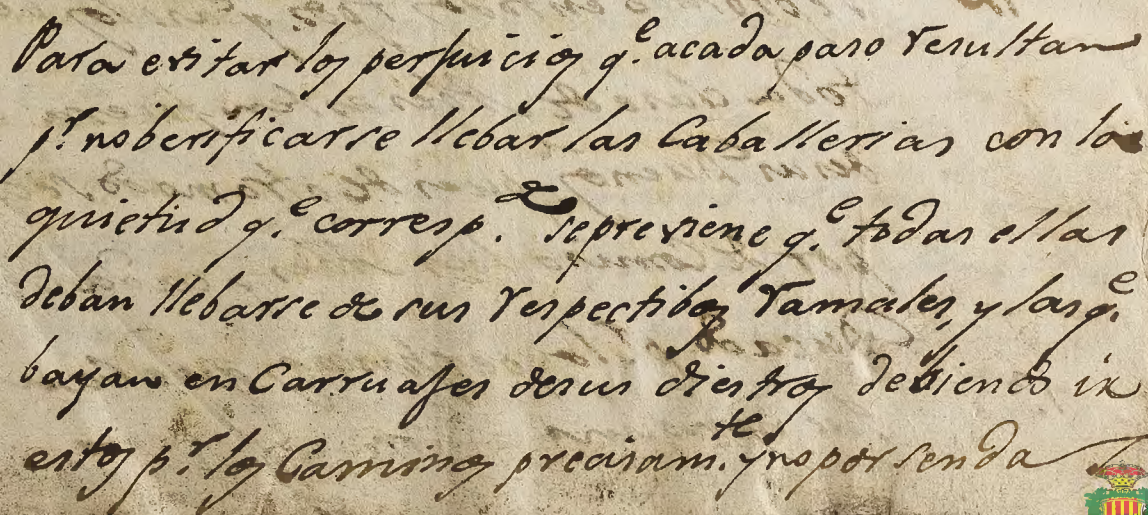 Para evitar los perjuicios q.e acada paso resultan
p.r noberificarse llebar las Caballerias con la
quietud q.e corresp.de sepreviene q.e todas ellas
deban llebarse de sus respectibos ramales, y las q.e
bayan en Carruajes desus diestros debiendo ir
estos p.r los Caminos precisam.te y no por senda